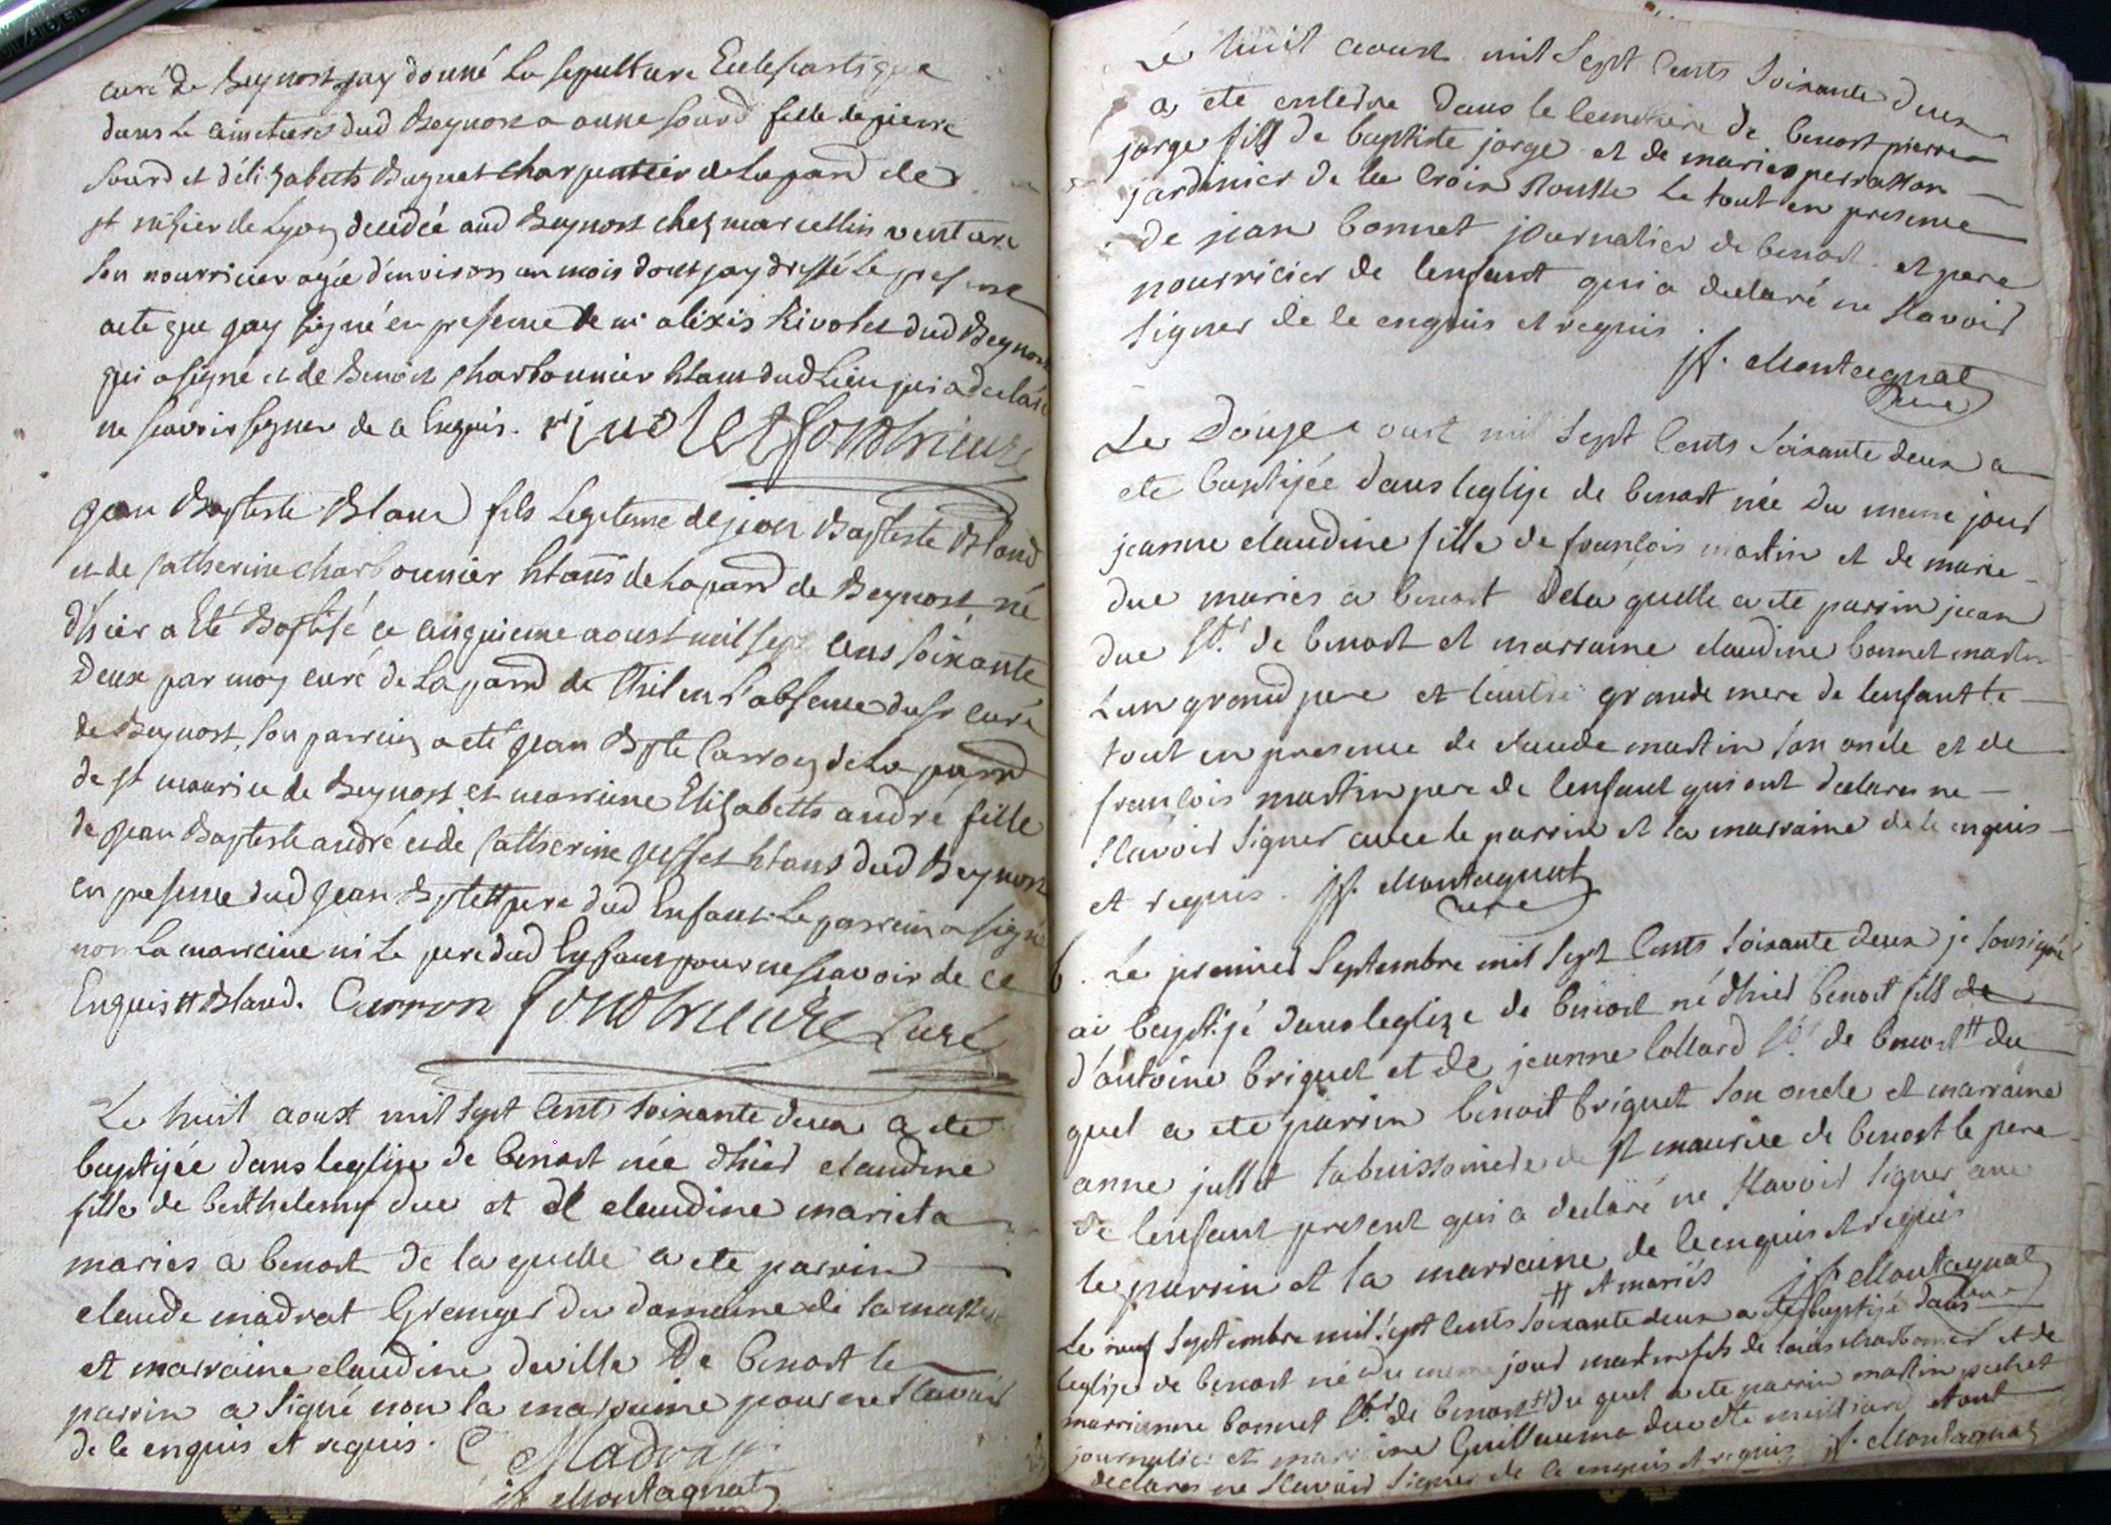 curé de Beynost jay donné la sepulture Eclesiastique
dans le cimetiere dud Beynost a anne sourd fille de pierre
sourd et d'élizabeth Bugnet charpentier de la parr de
st nizier de Lyon decedée aud Beynost chez marcellin venture
son nourricier agée d'environ un mois dont jay dressé le present
acte que jay signé en presence de m alexis Rivolet dud Beynost
qui a signé et de Benoit charbonnier htant dud Lieu qui a declaré
ne sçavoir signer de ce Enquis. rivolet
jean Baptiste Blanc fils Legitime de jean Baptiste Bland
et de Catherine charbonnier htans de la parr de Beynost né
d'hier a Eté Baptisé ce cinquieme aoust mil sept cens soixante
deux par moy curé de la parr de Thil en l'absence du sr curé
de Beynost, son parrein a eté jean Bpte Carron de la parr
de st maurice de Beynost et marreine Elizabeth andré fille
de jean Baptiste andré et de Catherine htans dud Beynost
en presence dud jean Bpte # pere dud Enfant. Le parrein a signé
non La marreine ni Le pere dud Enfant pour ne scavoir de ce
Enquis # Bland. Carron Curé
Le huit aoust mil sept cent soixante deux a ete
baptisée dans leglise de benost née dhier claudine
fille de berthelemy duc et de claudine marieta
maries a benost de la quelle a ete parrin
claude madrat Granger du domaine de la
et marraine claudine deville De benost le
parrin a signé non la marraine pour ne scavoir
de le enquis et requis. C Madrat
jf. Montagnat
Le huit aoust mil sept cents soixante deux
a ete enterre dans le cemetiere de benost pierre
jorge fils de baptiste jorge et de marie perrasson
jardinier de la Croix Rousse le tout en presence
de jean bonnet journalier de benost et pere
nourricier de lenfant qui a declaré ne scavoir
signer de le enquis et requis.
jf. Montagnat
curé
Le Douze aoust mil sept cents soixante deux a
ete baptisée dans leglise de benost née du meme jour
jeanne claudine fille de françois martin et de marie
duc maries a benost De la quelle a ete parrin jean
duc de benost et marraine claudine bonnet martin
Lun grand pere et lautre grande mere de lenfant le
tout en presence de claude martin son oncle et de
françois martin pere de lenfant qui ont declares ne
scavoir signer avec le parrin et la marraine de le enquis
et requis. jf. Montagnat
curé
b. Le premier Septembre mil sept Cents soixante deux je sousigné
ai baptisé dans leglize de benost né dhier benoit fils de
d'antoine briquet et de jeanne Collard de benost # du
quel a ete parrin benoit briquet son oncle et marraine
anne jullet de st maurice de benost le pere
de lenfant present qui a declaré ne scavoir signer avec
le parrin et la marraine de le enquis et requis
# et mariés jf. Montagnat
Le neuf Septembre mil sept cents soixante deux a ete baptisé dans
leglize de benost né du meme jour martin fils de louis charbonnier et de
marrianne bonnet de benost # du quel a ete parrin martin
journalier et marraine Guillauma duc et tout
declares ne scavoir signer de le enquis et requis jf. Montagnat